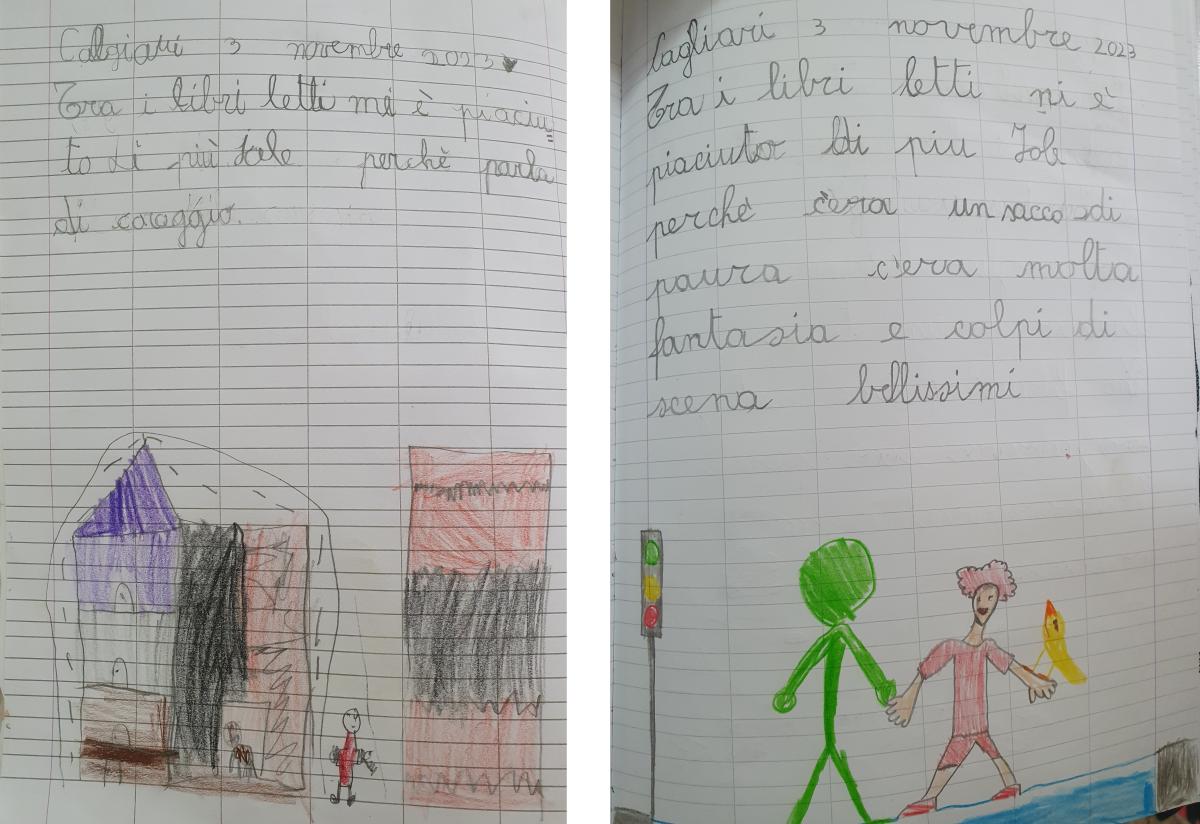 Calgiari 3 novembre 2023
Tra i libri letti mi è piaciu=
to di più Iole perchè parla
di coraggio.
Cagliari 3 novembre 2023
Tra i libri letti mi è
piaciuto di piu Iole
perchè c'era un sacco di
paura c'era molta
fantasia e colpi di
scena bellissimi